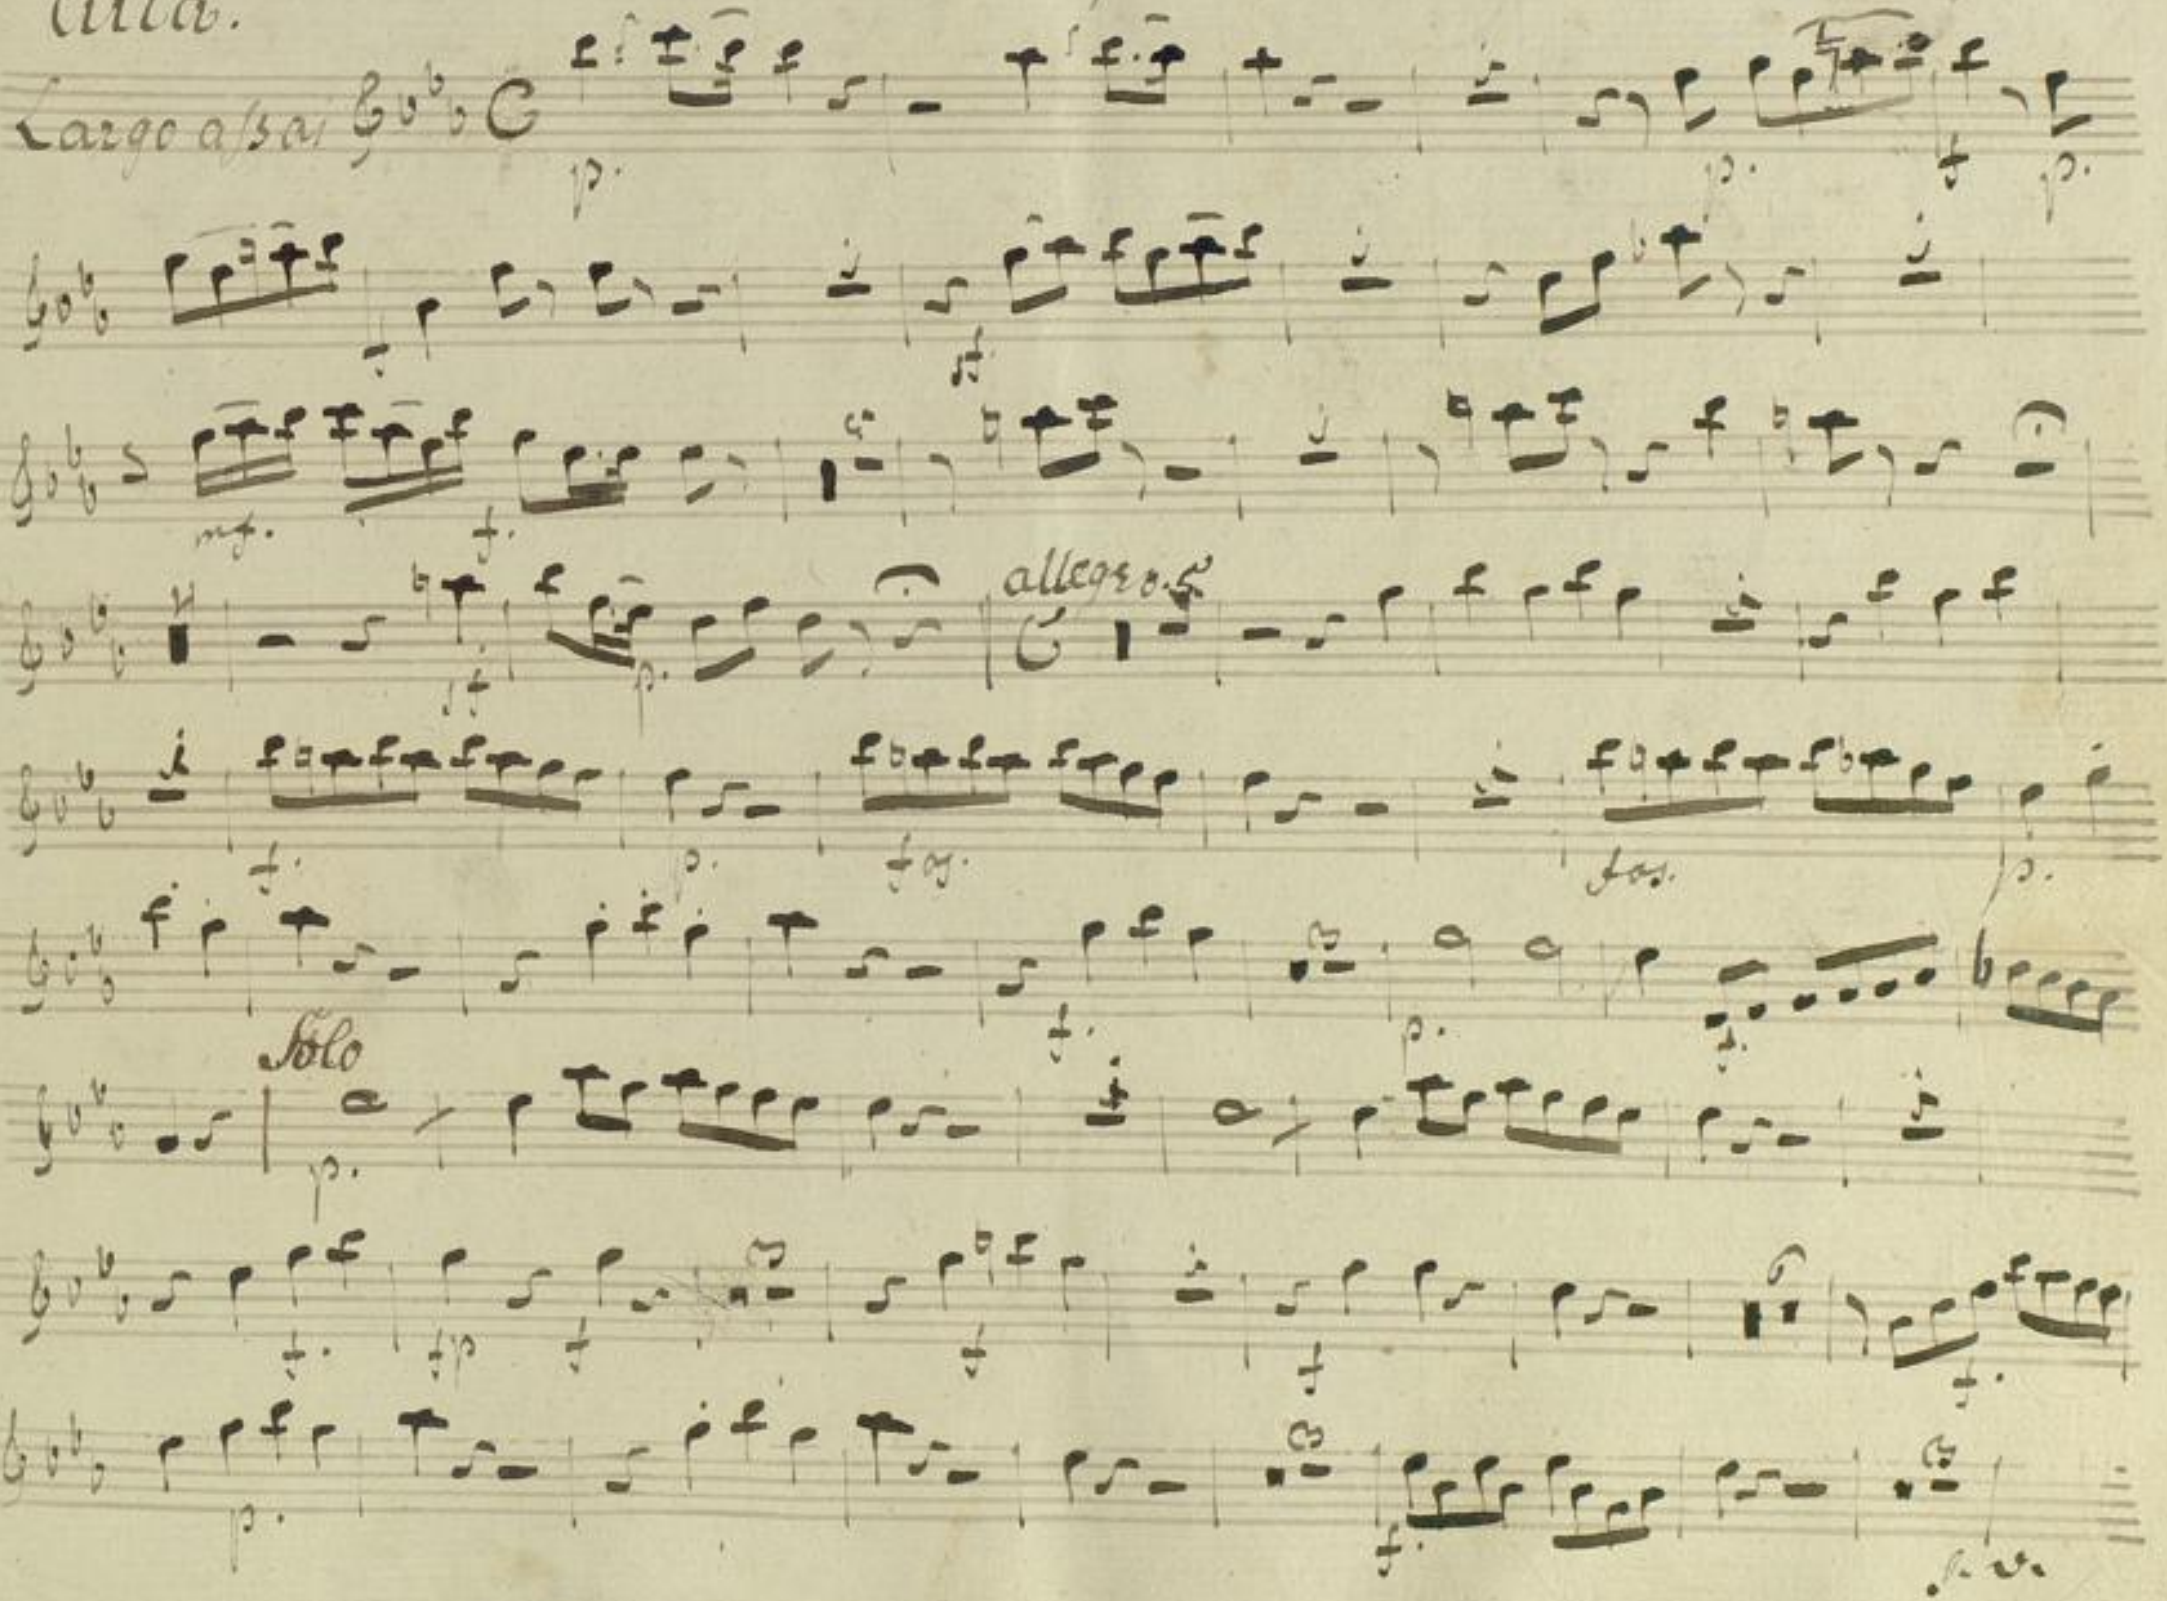 Aria.
Largo assai
p. p. f p.
sf
mf. f.
allegro. 5
sf p.
f. p. fos. fos. p.
3
f. p. f.
Solo
p.
3 6
f. fp f f f f.
3 3
p. f.
s. v.